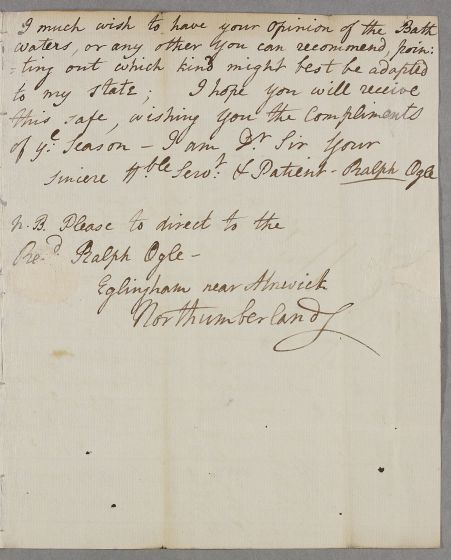 I much wish to have your Opinion of the Bath
waters, or any other you can recommend, poin:
:ting out which kind might best be adapted
to my state; I hope you will receive
this safe, wishing you the Compliments
of yᵉ Season – I am Dʳ Sir your
sincere Hᵇˡᵉ Servᵗ & Patient – Ralph Ogle
N.B. Please to direct to the
Revᵈ Ralph Ogle –
Eglingham near Alnwick
Northumberland